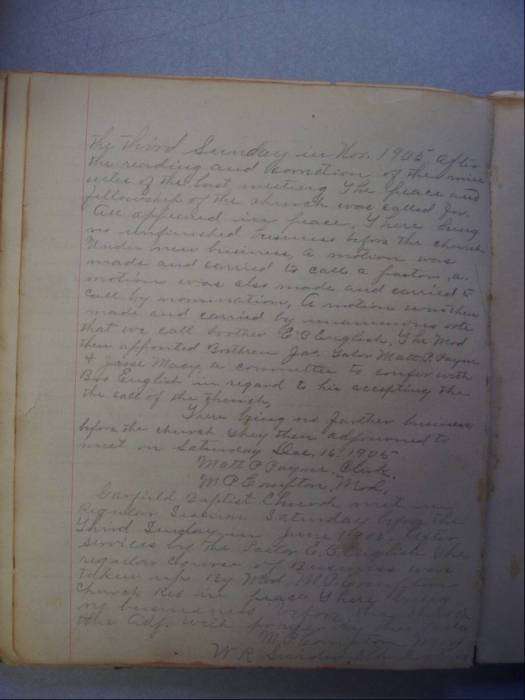 the third Sunday in Nov. 1905 After
the reading and correction of the min
utes of the last meeting The peace and
fellowship of the church was called for.
All appeared in peace, There being
no unfinished business before the church
Under new business, a motion was
made and carried to call a pastor, a
motion was also made and carried to
call by nomination, A motion was then
made and carried by unanimous vote
that we call brother E. C. English, The Mod
then appointed Brethren Jas. Matt P. Payne
& Jesse Macy, a committee to confer with
Bro English in regard to his accepting the
the call of the church,
There being no further business
before the church they then adjourned to
meet on Saturday Dec. 16. 1905
Matt P. Payne, Clerk.
M P Compton, Mod,
Garfield Baptist Church met in
Regular Session Saturday before the
Third Sunday in June 1906. After
Services by the Pastor E. C. English the
regular course of Business was
taken up By Mod M. P. Compton
Church in peace There being
no business before the church
the Adj. with
M P Compton Mod
W. R.